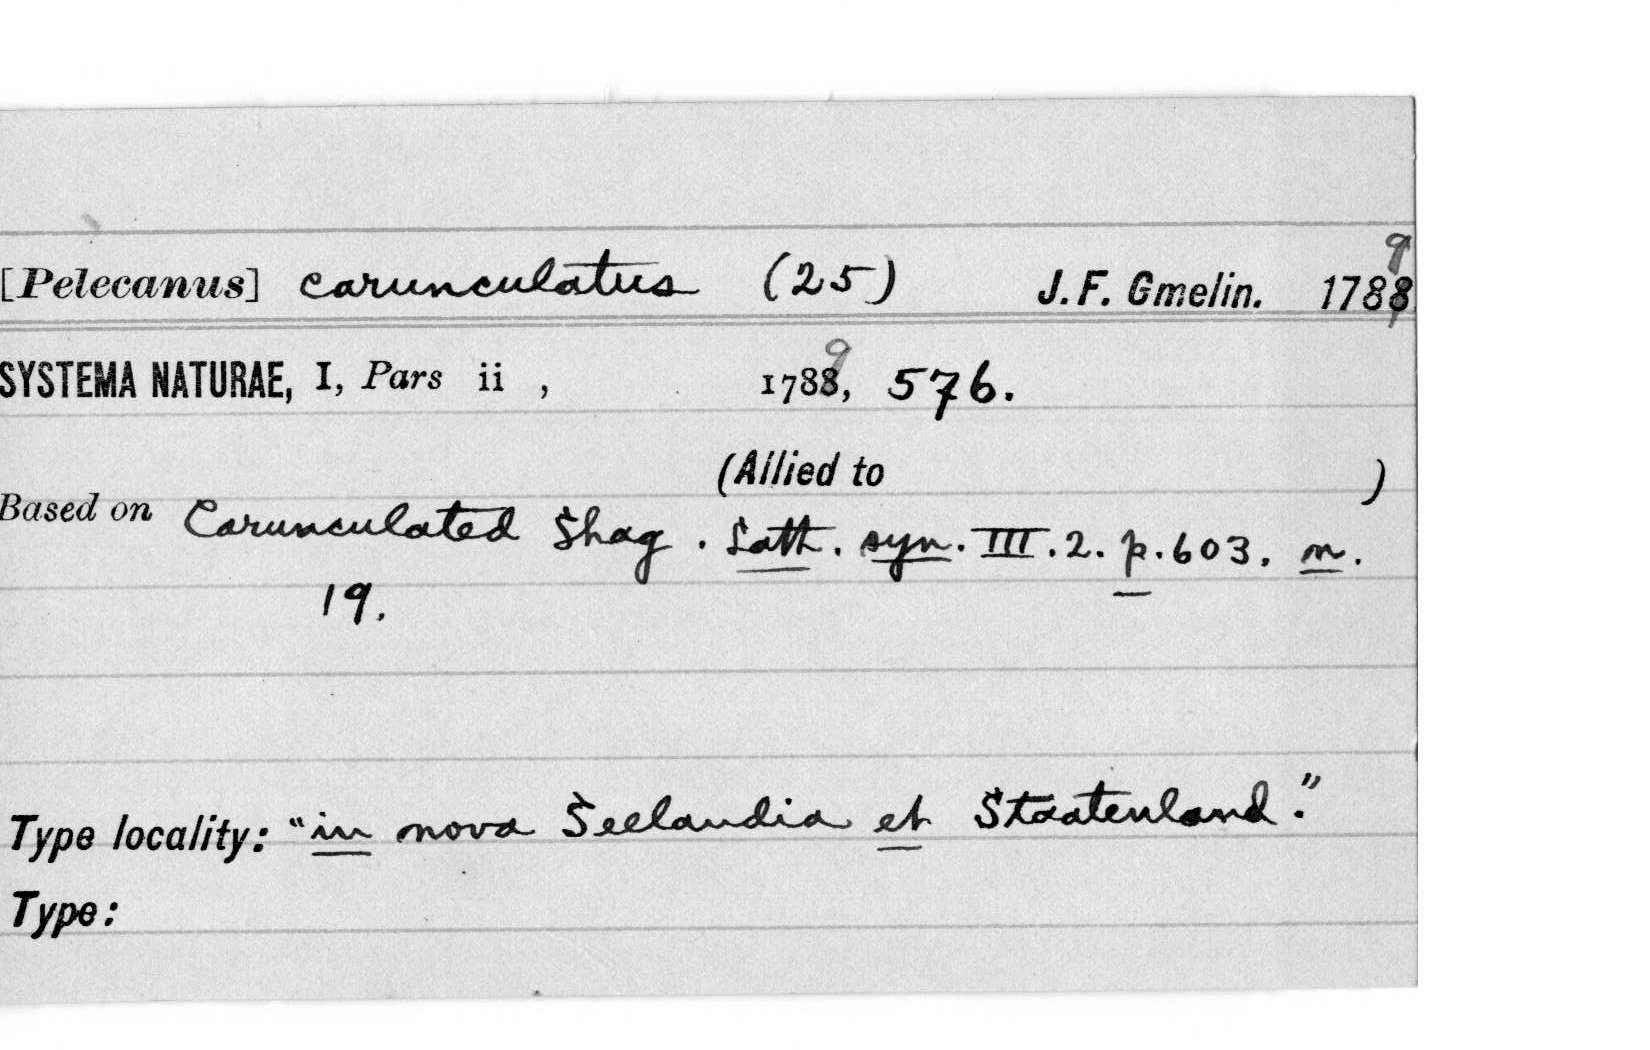 [Pelecanus] carunculatus (25) J. F. Gmelin. 1788 9
SYSTEMA NATURAE, I, Pars ii , 1788, 9 576.
(Allied to )
Based on Carunculated Shag. Lath. syn. III. 2. p. 603. n.
19.
Type locality: "in nova Seelandia et Staatenland."
Type: